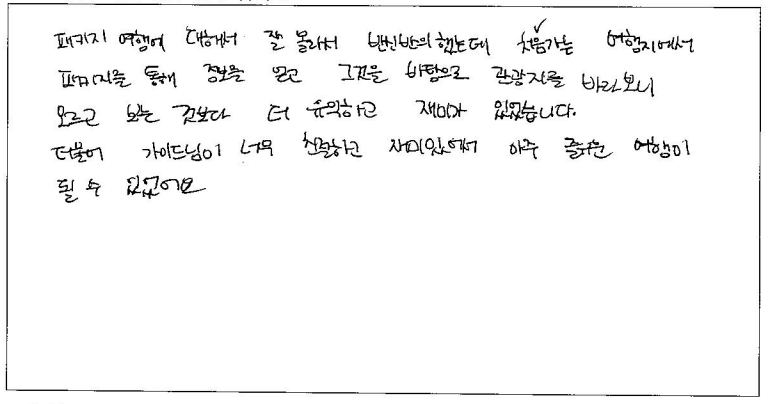 패키지 여행에 대해서 잘 몰라서 반신반의했는데 처음가는 여행지에서
패키지를 통해 정보를 얻고 그것을 바탕으로 관광지를 바라보니
모르고 보는 것보다 더 유익하고 재미가 있었습니다.
더불어 가이드님이 너무 친절하고 재미있어서 아주 즐거운 여행이
될 수 있었어요